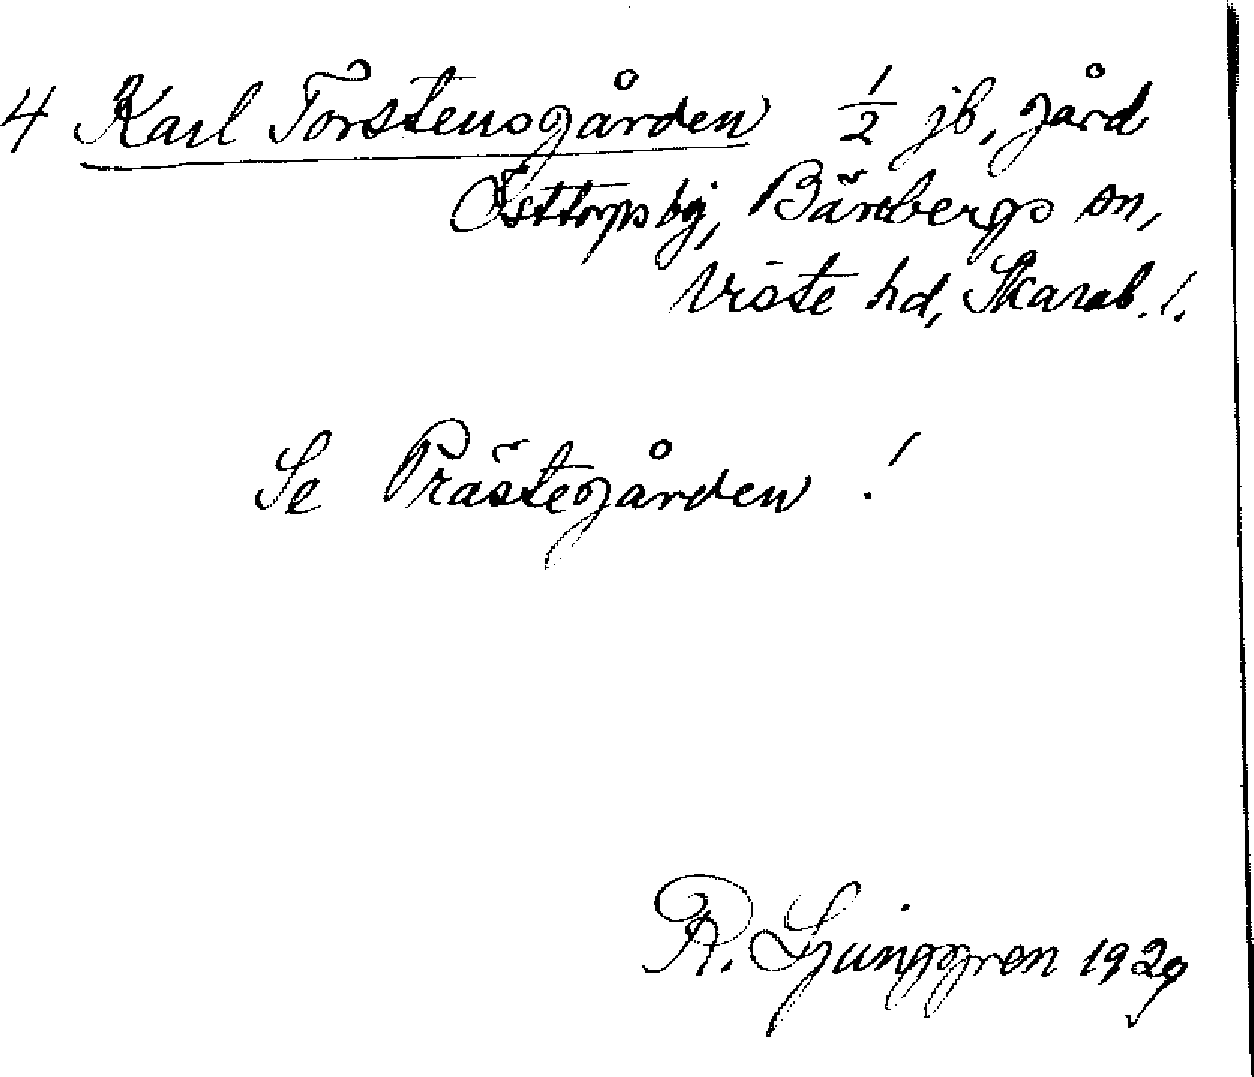 4 Karl Torstensgården 1/2 jb. gård
Östtorps by, Bärebergs sn,
Viste hd, Skarab. l.
Se Prästegården !
R. Ljunggren 1929